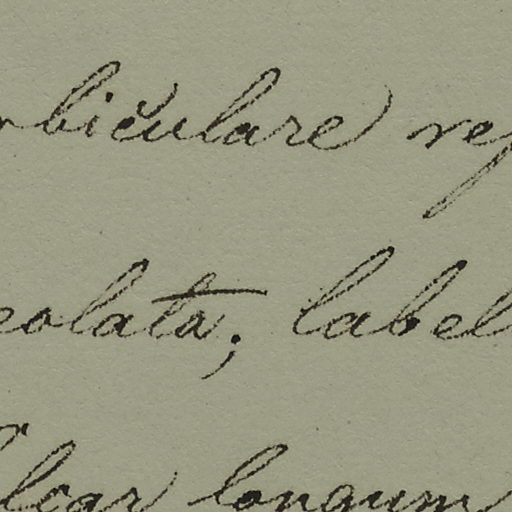 rbiculare re
eolata; label
lcar longum